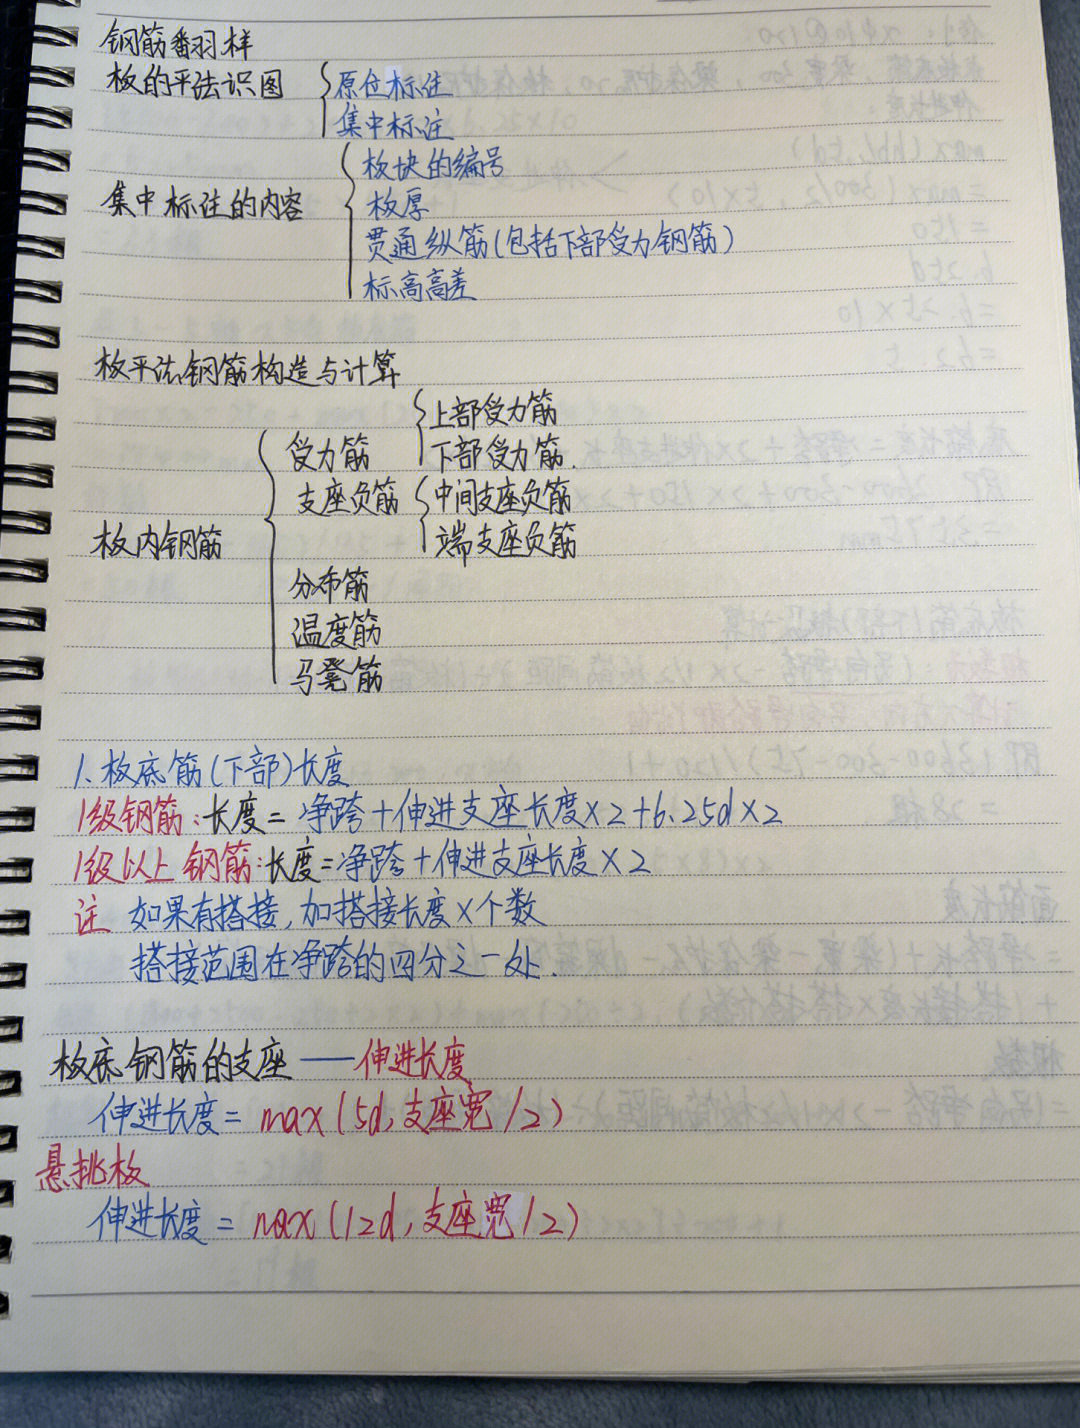 钢筋翻样
板的平法识图
原位标注
集中标注
集中标注的内容
板块的编号
板厚
贯通纵筋(包括下部受力钢筋)
标高高差
板平法钢筋构造与计算
板内钢筋
受力筋
上部受力筋
下部受力筋.
支座负筋
中间支座负筋
端支座负筋
分布筋
温度筋
马凳筋
1、板底筋(下部)长度
1级钢筋:长度=净跨+伸进支座长度×2+6.25d×2
1级以上钢筋:长度=净跨+伸进支座长度×2
注 如果有搭接,加搭接长度×个数
搭接范围在净跨的四分之一处.
板底钢筋的支座——伸进长度
伸进长度=max(5d,支座宽/2)
悬挑板
伸进长度=max(12d,支座宽/2)